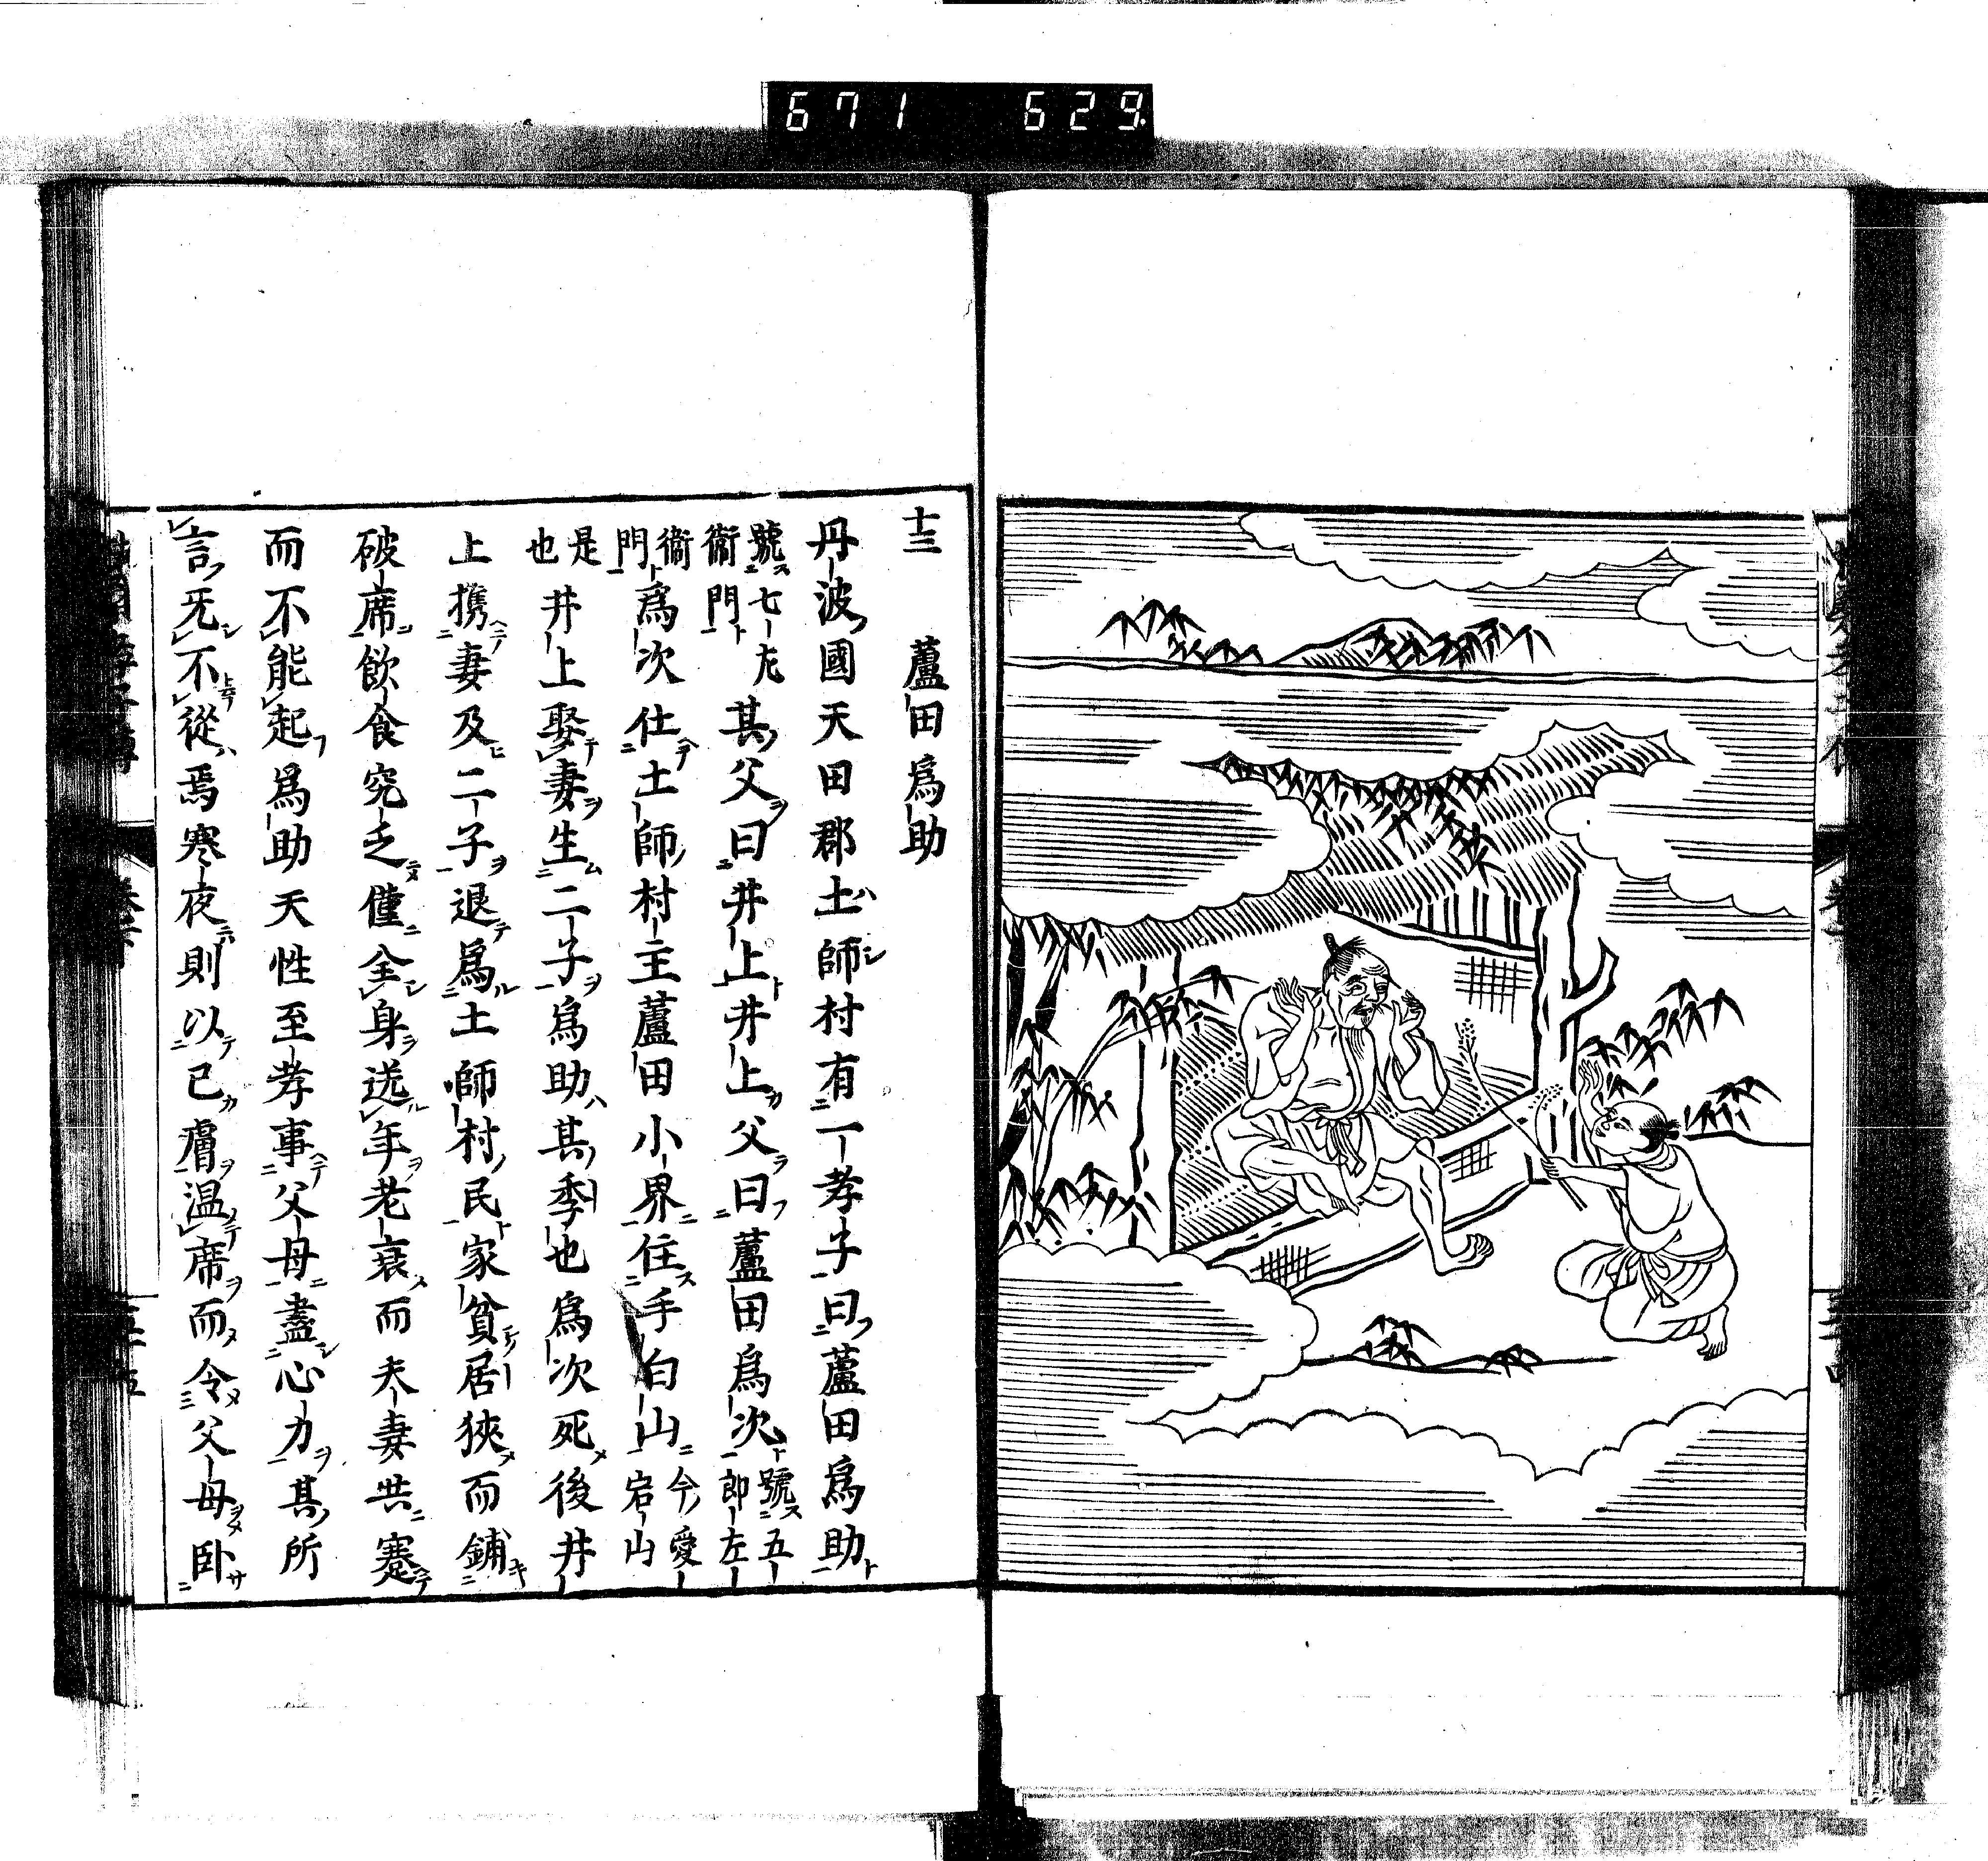 671 629
十三 蘆田爲助
丹波國天田郡土師村有一孝子曰蘆田爲助
其父曰井上井上父曰蘆田爲次
號五郎左衞門是也
爲次仕土師村主蘆田小界住手白山
今愛宕山
井上娶妻生二子爲助其季也爲次死後井
上携妻及二子退爲土師村民家貧居狹而鋪
破席飲食究乏僅全身迄年老衰而夫妻共蹇
而不能起爲助天性至孝事父母盡心力其所
言无不從焉寒夜則以己膚温席而令父母卧